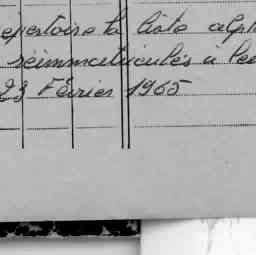 repertoire la liste alp
reimmatriculés à
23 Février 1965